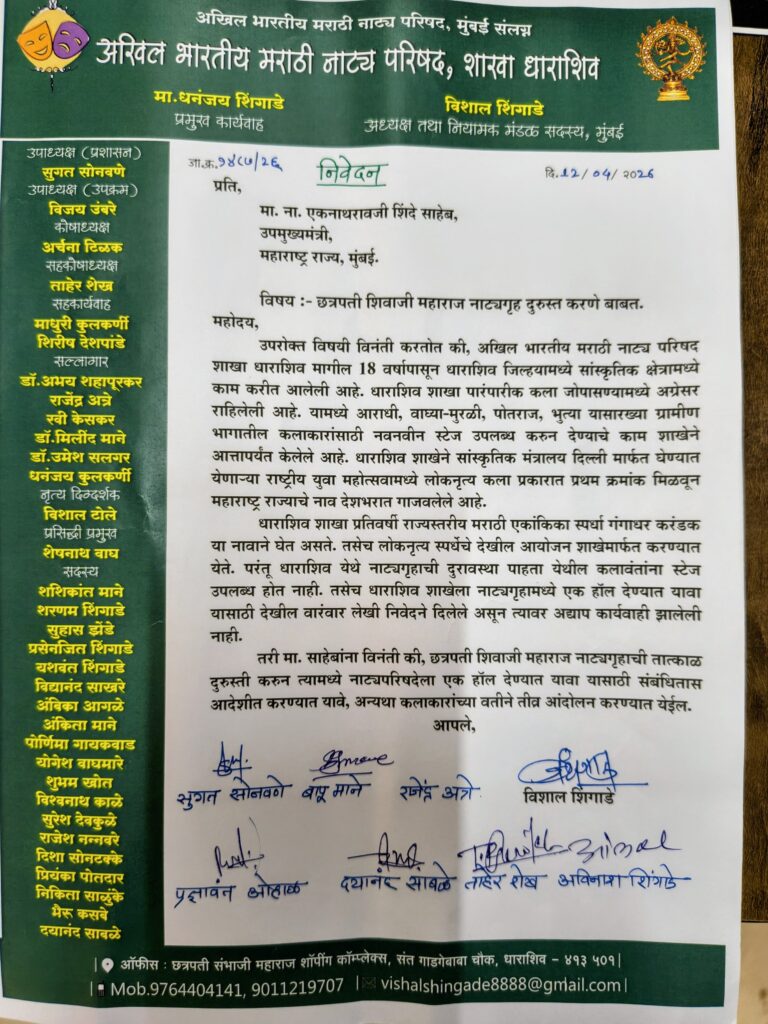 अखिल भारतीय मराठी नाट्य परिषद, मुंबई संलग्न
अखिल भारतीय मराठी नाट्य परिषद, शाखा धाराशिव
मा.धनंजय शिंगाडे
प्रमुख कार्यवाह
विशाल शिंगाडे
अध्यक्ष तथा नियामक मंडळ सदस्य, मुंबई
उपाध्यक्ष (प्रशासन)
सुगत सोनवणे
उपाध्यक्ष (उपक्रम)
विजय उंबरे
कोषाध्यक्ष
अर्चना टिळक
सहकोषाध्यक्ष
ताहेर शेख
सहकार्यवाह
माधुरी कुलकर्णी
शिरीष देशपांडे
सल्लागार
डॉ.अभय शहापूरकर
राजेंद्र अत्रे
रवी केसकर
डॉ.मिलींद माने
डॉ.उमेश सलगर
धनंजय कुलकर्णी
नृत्य दिग्दर्शक
विशाल टोले
प्रसिद्धी प्रमुख
शेषनाथ वाघ
सदस्य
शशिकांत माने
शरणम शिंगाडे
सुहास झेंडे
प्रसेनजित शिंगाडे
यशवंत शिंगाडे
विद्यानंद साखरे
अंबिका आगळे
अंकिता माने
पोर्णिमा गायकवाड
योगेश वाघमारे
शुभम खोत
विश्वनाथ काळे
सुरेश देवकुळे
राजेश नन्नवरे
दिशा सोनटक्के
प्रियंका पोतदार
निकिता साळुंके
भैरू कसबे
दयानंद साबळे
जा.क्र.१४८७/२६
निवेदन
दि.12/04/2026
प्रति,
मा. ना. एकनाथरावजी शिंदे साहेब,
उपमुख्यमंत्री,
महाराष्ट्र राज्य, मुंबई.
विषय :- छत्रपती शिवाजी महाराज नाट्यगृह दुरुस्त करणे बाबत.
महोदय,
उपरोक्त विषयी विनंती करतोत की, अखिल भारतीय मराठी नाट्य परिषद
शाखा धाराशिव मागील 18 वर्षापासून धाराशिव जिल्हयामध्ये सांस्कृतिक क्षेत्रामध्ये
काम करीत आलेली आहे. धाराशिव शाखा पारंपारीक कला जोपासण्यामध्ये अग्रेसर
राहिलेली आहे. यामध्ये आराधी, वाघ्या-मुरळी, पोतराज, भुत्या यासारख्या ग्रामीण
भागातील कलाकारांसाठी नवनवीन स्टेज उपलब्ध करुन देण्याचे काम शाखेने
आत्तापर्यंत केलेले आहे. धाराशिव शाखेने सांस्कृतिक मंत्रालय दिल्ली मार्फत घेण्यात
येणाऱ्या राष्ट्रीय युवा महोत्सवामध्ये लोकनृत्य कला प्रकारात प्रथम क्रमांक मिळवून
महाराष्ट्र राज्याचे नाव देशभरात गाजवलेले आहे.
धाराशिव शाखा प्रतिवर्षी राज्यस्तरीय मराठी एकांकिका स्पर्धा गंगाधर करंडक
या नावाने घेत असते. तसेच लोकनृत्य स्पर्धेचे देखील आयोजन शाखेमार्फत करण्यात
येते. परंतू धाराशिव येथे नाट्यगृहाची दुरावस्था पाहता येथील कलावंतांना स्टेज
उपलब्ध होत नाही. तसेच धाराशिव शाखेला नाट्यगृहामध्ये एक हॉल देण्यात यावा
यासाठी देखील वारंवार लेखी निवेदने दिलेले असून त्यावर अद्याप कार्यवाही झालेली
नाही.
तरी मा. साहेबांना विनंती की, छत्रपती शिवाजी महाराज नाट्यगृहाची तात्काळ
दुरुस्ती करुन त्यामध्ये नाट्यपरिषदेला एक हॉल देण्यात यावा यासाठी संबंधितास
आदेशीत करण्यात यावे, अन्यथा कलाकारांच्या वतीने तीव्र आंदोलन करण्यात येईल.
आपले,
सुगत सोनवणे बापू माने राजेंद्र अत्रे विशाल शिंगाडे
प्रज्ञावंत ओहाळ दयानंद साबळे ताहेर शेख अविनाश शिंगाडे
ऑफीस : छत्रपती संभाजी महाराज शॉपींग कॉम्प्लेक्स, संत गाडगेबाबा चौक, धाराशिव - ४१३ ५०१
Mob.9764404141, 9011219707 vishalshingade8888@gmail.com